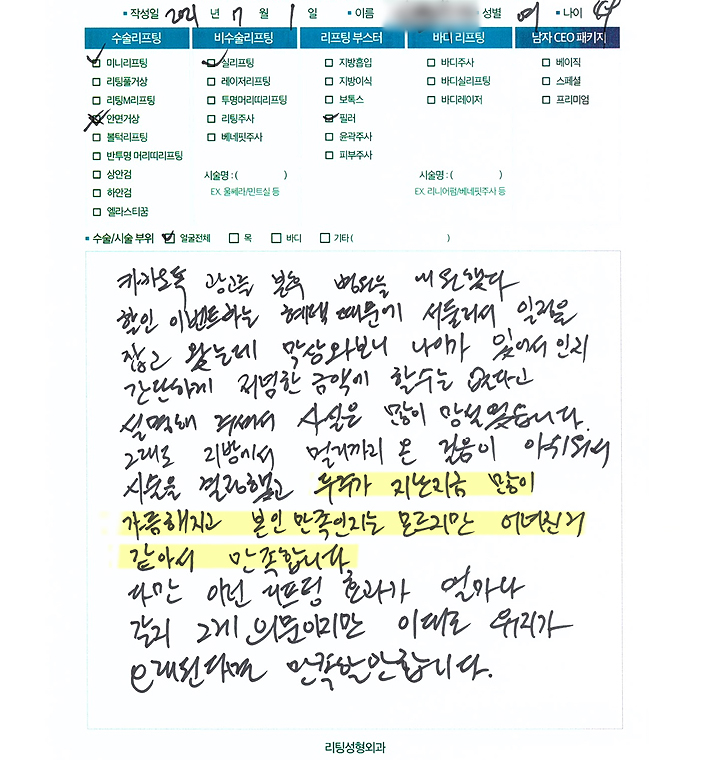 작성일 2021 년 7 월 1 일 이름 성별 여 나이
수술리프팅 비수술리프팅 리프팅 부스터 바디 리프팅 남자 CEO 패키지
미니리프팅 실리프팅 지방흡입 바디주사 베이직
리팅풀거상 레이저리프팅 지방이식 바디실리프팅 스페셜
리팅M리프팅 투명머리띠리프팅 보톡스 바디레이저 프리미엄
안면거상 리팅주사 필러
볼턱리프팅 베네핏주사 윤곽주사
반투명 머리띠리프팅 피부주사
상안검 시술명 : ( ) 시술명 : ( )
하안검 EX. 울쎄라/민트실 등 EX. 리니어펌/베네핏주사 등
엘라스티꿈
수술/시술 부위 얼굴전체 목 바디 기타 ( )
카카오톡 광고를 본후 병원을 내원했다
할인 이벤트하는 혜택 때문에 서둘러서 일정을
잡고 왔는데 막상와보니 나이가 있어서인지
간단하게 저렴한 금액에 할수는 없다고
설명해 주셔서 사실은 많이 망설였습니다.
그래도 지방에서 멀리까지 온 걸음이 아쉬워서
시술을 결정했고 두주가 지난지금 많이
갸름해지고 본인만족인지는 모르지만 어려진거
같아서 만족합니다.
다만 이런 리프팅 효과가 얼마나
갈지 그게 의문이지만 이대로 유지가
오래된다면 만족할만합니다.
리팅성형외과